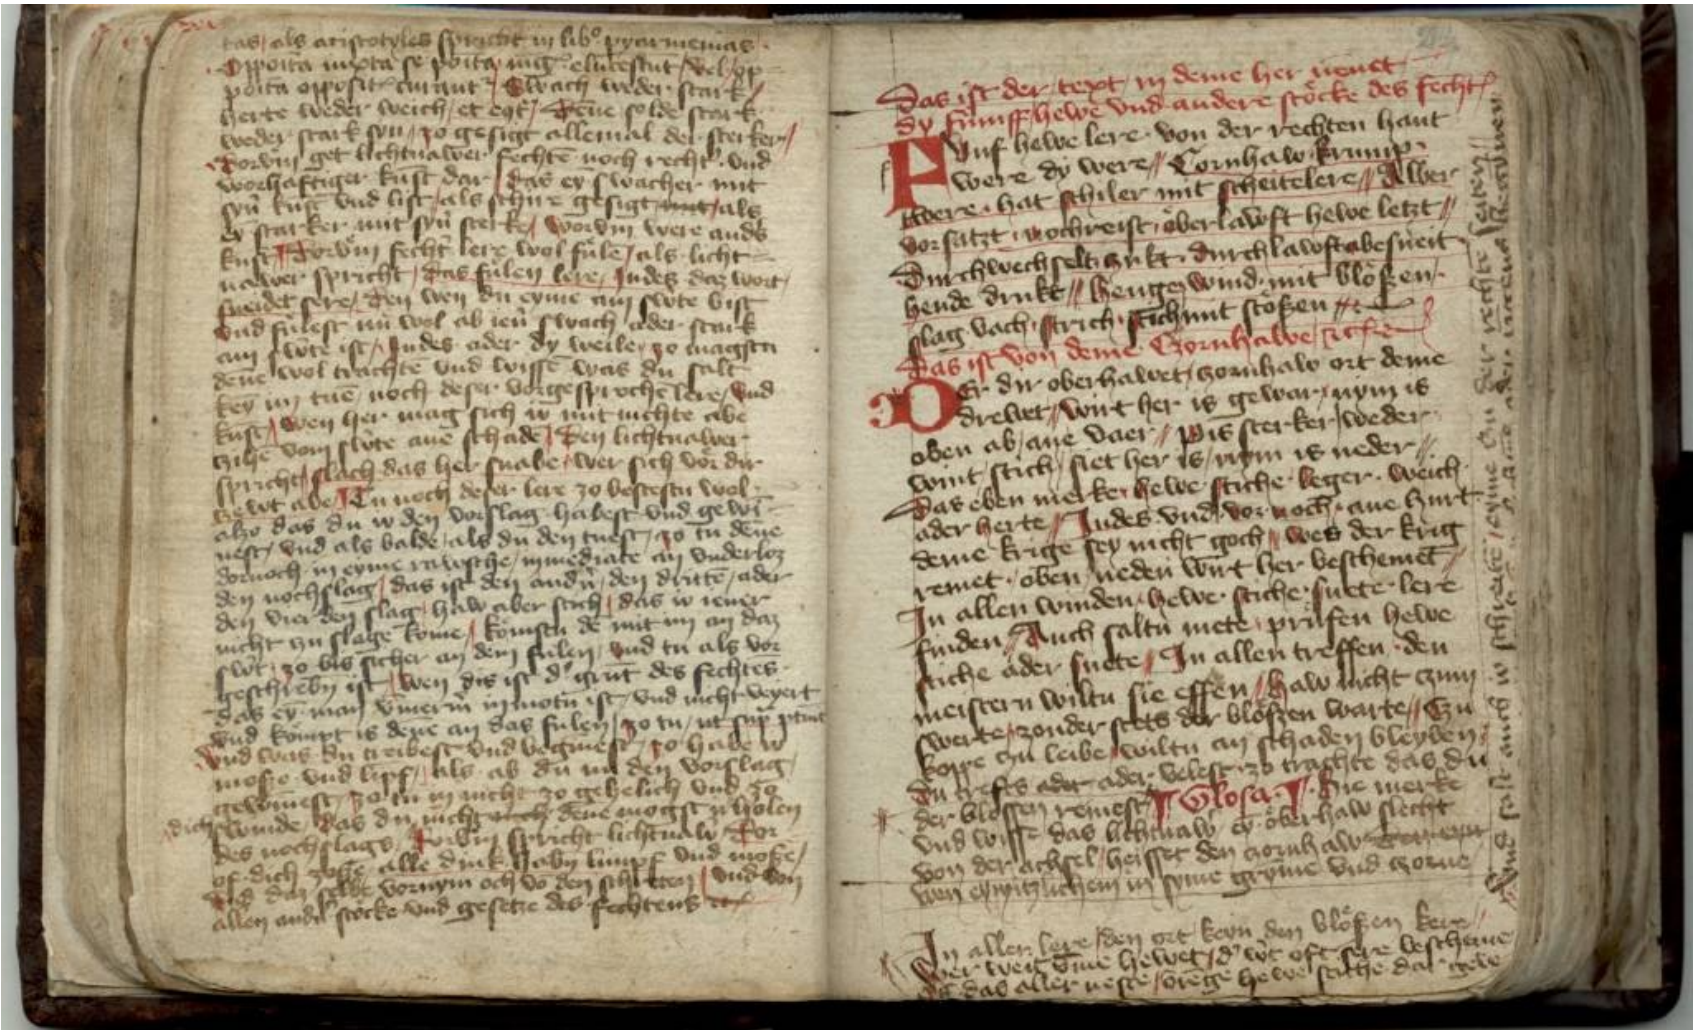 tas / als aristotyles spricht in libro pyarmenias
Opposita iuxta se posita magis elucescunt / vel
posita oppositis curant~ / Swach weder stark /
herte weder weich / et eqͣ / Denne solde stark
weder stark syn / zo gesigt allemal der sterker /
Dorvm get lichtnawer fechtē noch rechter vnd
worhaftiger kunst dar / das eyn swacher mit
syner kunst vnd list / als schire gesigt mit / als
eyn starker mit syner sterke / worvm were anders
kunst / Dorvm fechter lere wol fulen / als lichtnawer
nawer spricht / das fülen lere / Indes daz wort /
sneidet sere / Den wen du eyme am swerte bist
vnd fülest nu wol ab iener swach ader stark
am swerte ist / Indes ader dy weile / zo magstu
denne wol trachtē vnd wissē was du salt
keyn im tuē / noch deser vorgesprochē lere / vnd
kunst / wen her mag sich io mit nichte abe
czihē vom swerte ane schadē / Den lichtnawer
spricht / slach das her snabe / wer sich vor dir
zewt abe / Tu noch deser lere zo bestestu wol
alzo das du io den vorslag habest vnd gewinnest
nest / vnd als balde / als du den tuest / zo tu denne
dornoch in eyme rawsche / immediate an vnderloz
den nochslag / das ist den andern / den drittē / ader
den vierden slag / haw aber stich / das io iener
nicht zu slage kome / komstu denne mit im an daz
swert / zo bis sicher an dem fülen / vnd tu als vor
geschreben ist / wen dis ist der grunt des fechtes
das eyn man ymmermer in motu ist / vnd nicht veyert
vnd kompt is denne an das fülen / zo tu / ut supra
vnd was du treibest vnd begīnest / zo habe io
moße vnd limpf / als ab du im den vorslag
gewinnest / zo tu in nicht zo gehelich vnd zo
swinde / das du dich nicht noch denne mogst irholen
des nochslags / Dorvm spricht lichtnawer Dor
of dich zosze / alle dink haben limpf vnd moße /
vnd daz selbe vornym och von den schreten / vnd von
allen andern stöcke vnd gesetze des fechtens etc
Das ist der text / in deme her nenet
dy fümff hewe vnd andere stöcke des fechtens
Fvnf hewe lere · von der rechten hant
were dy were // Czornhaw · krump ·
twere · hat schiler mit scheitelere // Alber
vorsatzt · nochreist · öberlawft hewe letzt //
Durchwechselt · czukt · durchlawft abesneit
hende drukt // henge wind · mit blößen ·
slag vach · strich · stich mit stoßen //
Das ist von deme Czornhawe etc
Der dir oberhawet / czornhaw ort deme
drewet / wirt her is gewar / nym is
oben ab / ane vaer // pis sterker / weder
wint / stich / siet her is / nym is neder //
Das eben merke / hewe · stiche · leger · weich
ader herte // Indes · vnd / vor noch · ane hurt
deme krige sey nicht goch // wes der krig
remet · oben / neden wirt her beschemet //
In allen winden / hewe · stiche · snete · lere
finden // Auch saltu mete · prüfen hewe
stiche ader snete // In allen treffen · den
meistern wiltu sie effen // haw nicht czum
swerte / zonder stets der blößen warte // Czu
koppe czu leibe / wiltu an schaden bleyben
du trefts ader velest zo trachte das du
der blossen remest // Glosa · hie merke
vnd wisse das lichtnawer eyn öberhaw slecht
von der achsel / heisset den czornhaw
wen eym iczlichem in syme gryme vnd czorne
In aller lere / den ort keyn den blößen kere //
Wer weit vmme hewet / der wirt oft sere bescheme
of das aller neste / brenge hewe stiche dar gewe